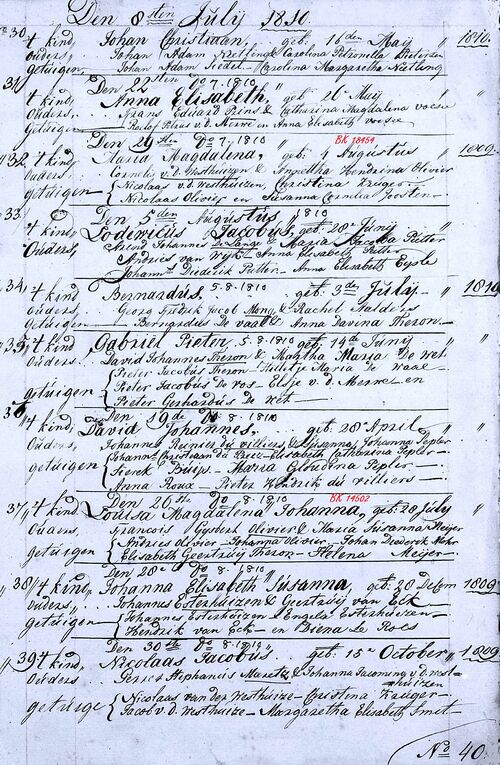 Den 8sten Julij 1810.
No 30 't kind, Johan Christiaan, geb. 16den Maij 1810.
Ouders, Johan Adam Nietling & Carolina Petronella Pietersen
Getuigen, Johan Adam Siedel — Carolina Margaretha Nietling
31 Den 22sten Do 7. 1810
't kind, Anna Elisabeth, geb: 26 Meij "
Ouders, Frans Eduard Prins & Catharina Magdalena voesee
Getuigen Roelof Petrus v.d. Merwe en Anna Elisabeth voesee
Den 29ste Do 7. 1810 BK 18464
32, 't kind, Maria Magdalena, geb: 4 Augustus 1809.
Ouders Cornelis v.d. Westhuizen & Annetha Hendrina Olivier
getuigen Nicolaas v.d. Westhuizen, Christina Kruger
Nicolaas Olivier en Susanna Cornelia Joosten
33 Den 5den Augustus 1810
't kind, Lodewicus Jacobus, geb. 28e Junij "
Ouders, Arend Johannes De Lange & Maria Jacoba Pieter
Andries van Wyk — Anna Elisabeth Pieter
Johannes Diederik Pieter — Anna Elisabeth Eysle
34, 't kind Bernardus, 5.8.1810 geb: 3de Julij 1810
Ouders, Georg Fredrik Jacob Mong & Rachel Naude
Getuigen Bernardus De vaal & Anna Davina Theron
35, 't kind Gabriel Pieter, 5.8.1810 geb: 14de Junij "
Ouders David Johannes Theron & Martha Maria De wet
getuigen Pieter Jacobus Theron — Hilletje Maria De waal
Pieter Jacobus De vos — Elsje v.d. Merwe en
Pieter Gerhardus De wet
36 Den 19de Do 8. 1810
't kind, David Johannes, geb. 28e April "
Ouders, Johannes Reunier du villiers, & Susanna Johanna Pepler
getuigen Johannes Christiaan du Preez — Elisabeth Catharina Pepler
Sierek Buijs — Maria Gloudina Pepler
Anna Roux — Pieter Hendrik du villiers
Den 26ste Do 8. 1810 BK 14502
37, 't kind, Louisa Magdalena Johanna, geb: 28 July "
Ouders, Francois Gysbert Olivier & Maria Susanna Meijer
getuigen Andries olivier — Johanna Olivier — Johan Diederek Mohr
Elisabeth Geertruij Theron — Helena Meijer
Den 28e Do 8. 1810
38, 't kind, Johanna Elisabeth Susanna, geb: 28 Decem 1809
ouders, Johannes Esterhuizen & Geertruij van Eck
getuigen Johannes Esterhuizen & Engela Esterhuizen
Hendrik van Eck — en Biena Le Roes
Den 30ste Do 8. 1810
39 't kind, Nicolaas Jacobus. geb: 15e October 1809
Ouders Gerret Stephanus Maretz & Johanna Jacomina v.d. west-
huizen
getuige Nicolaas van der Westhuize — Christina Kruger
Jacob v.d. Westhuize — Margaretha Elisabeth Smit
No 40.